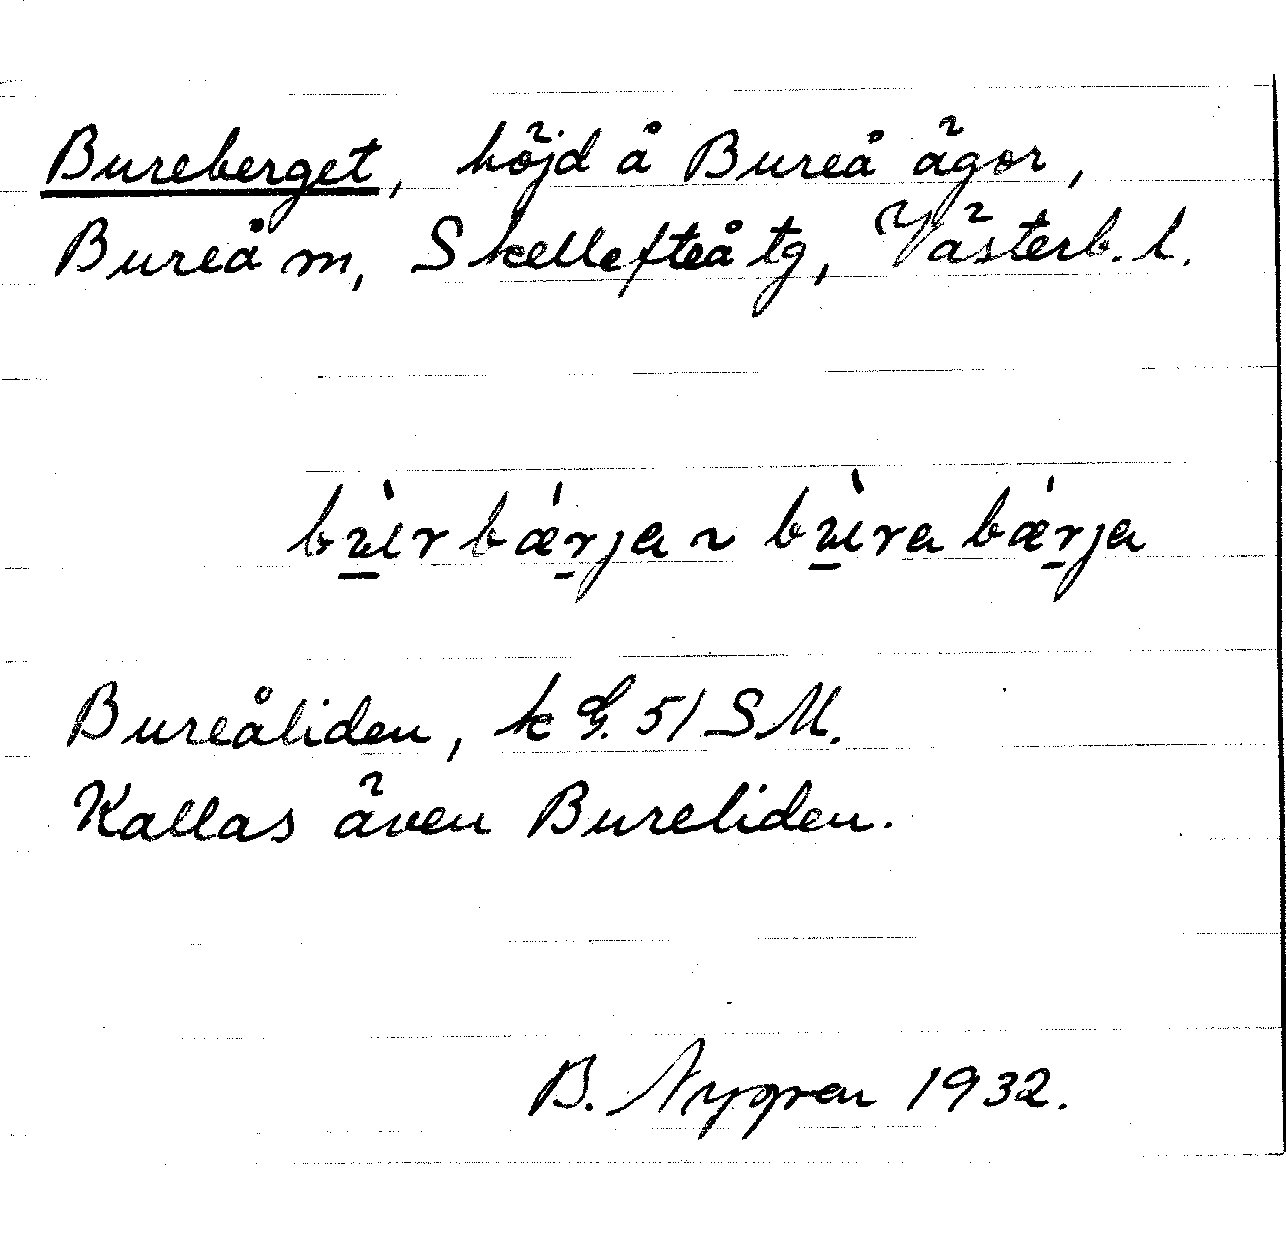 Bureberget, höjd å Bureå ägor,
Bureå m, Skellefteå tg, Västerb. l.
bùrbǽrja ~ bùrabǽrja
Bureåliden, k G. 51 SM.
Kallas även Bureliden.
B. Nygren 1932.